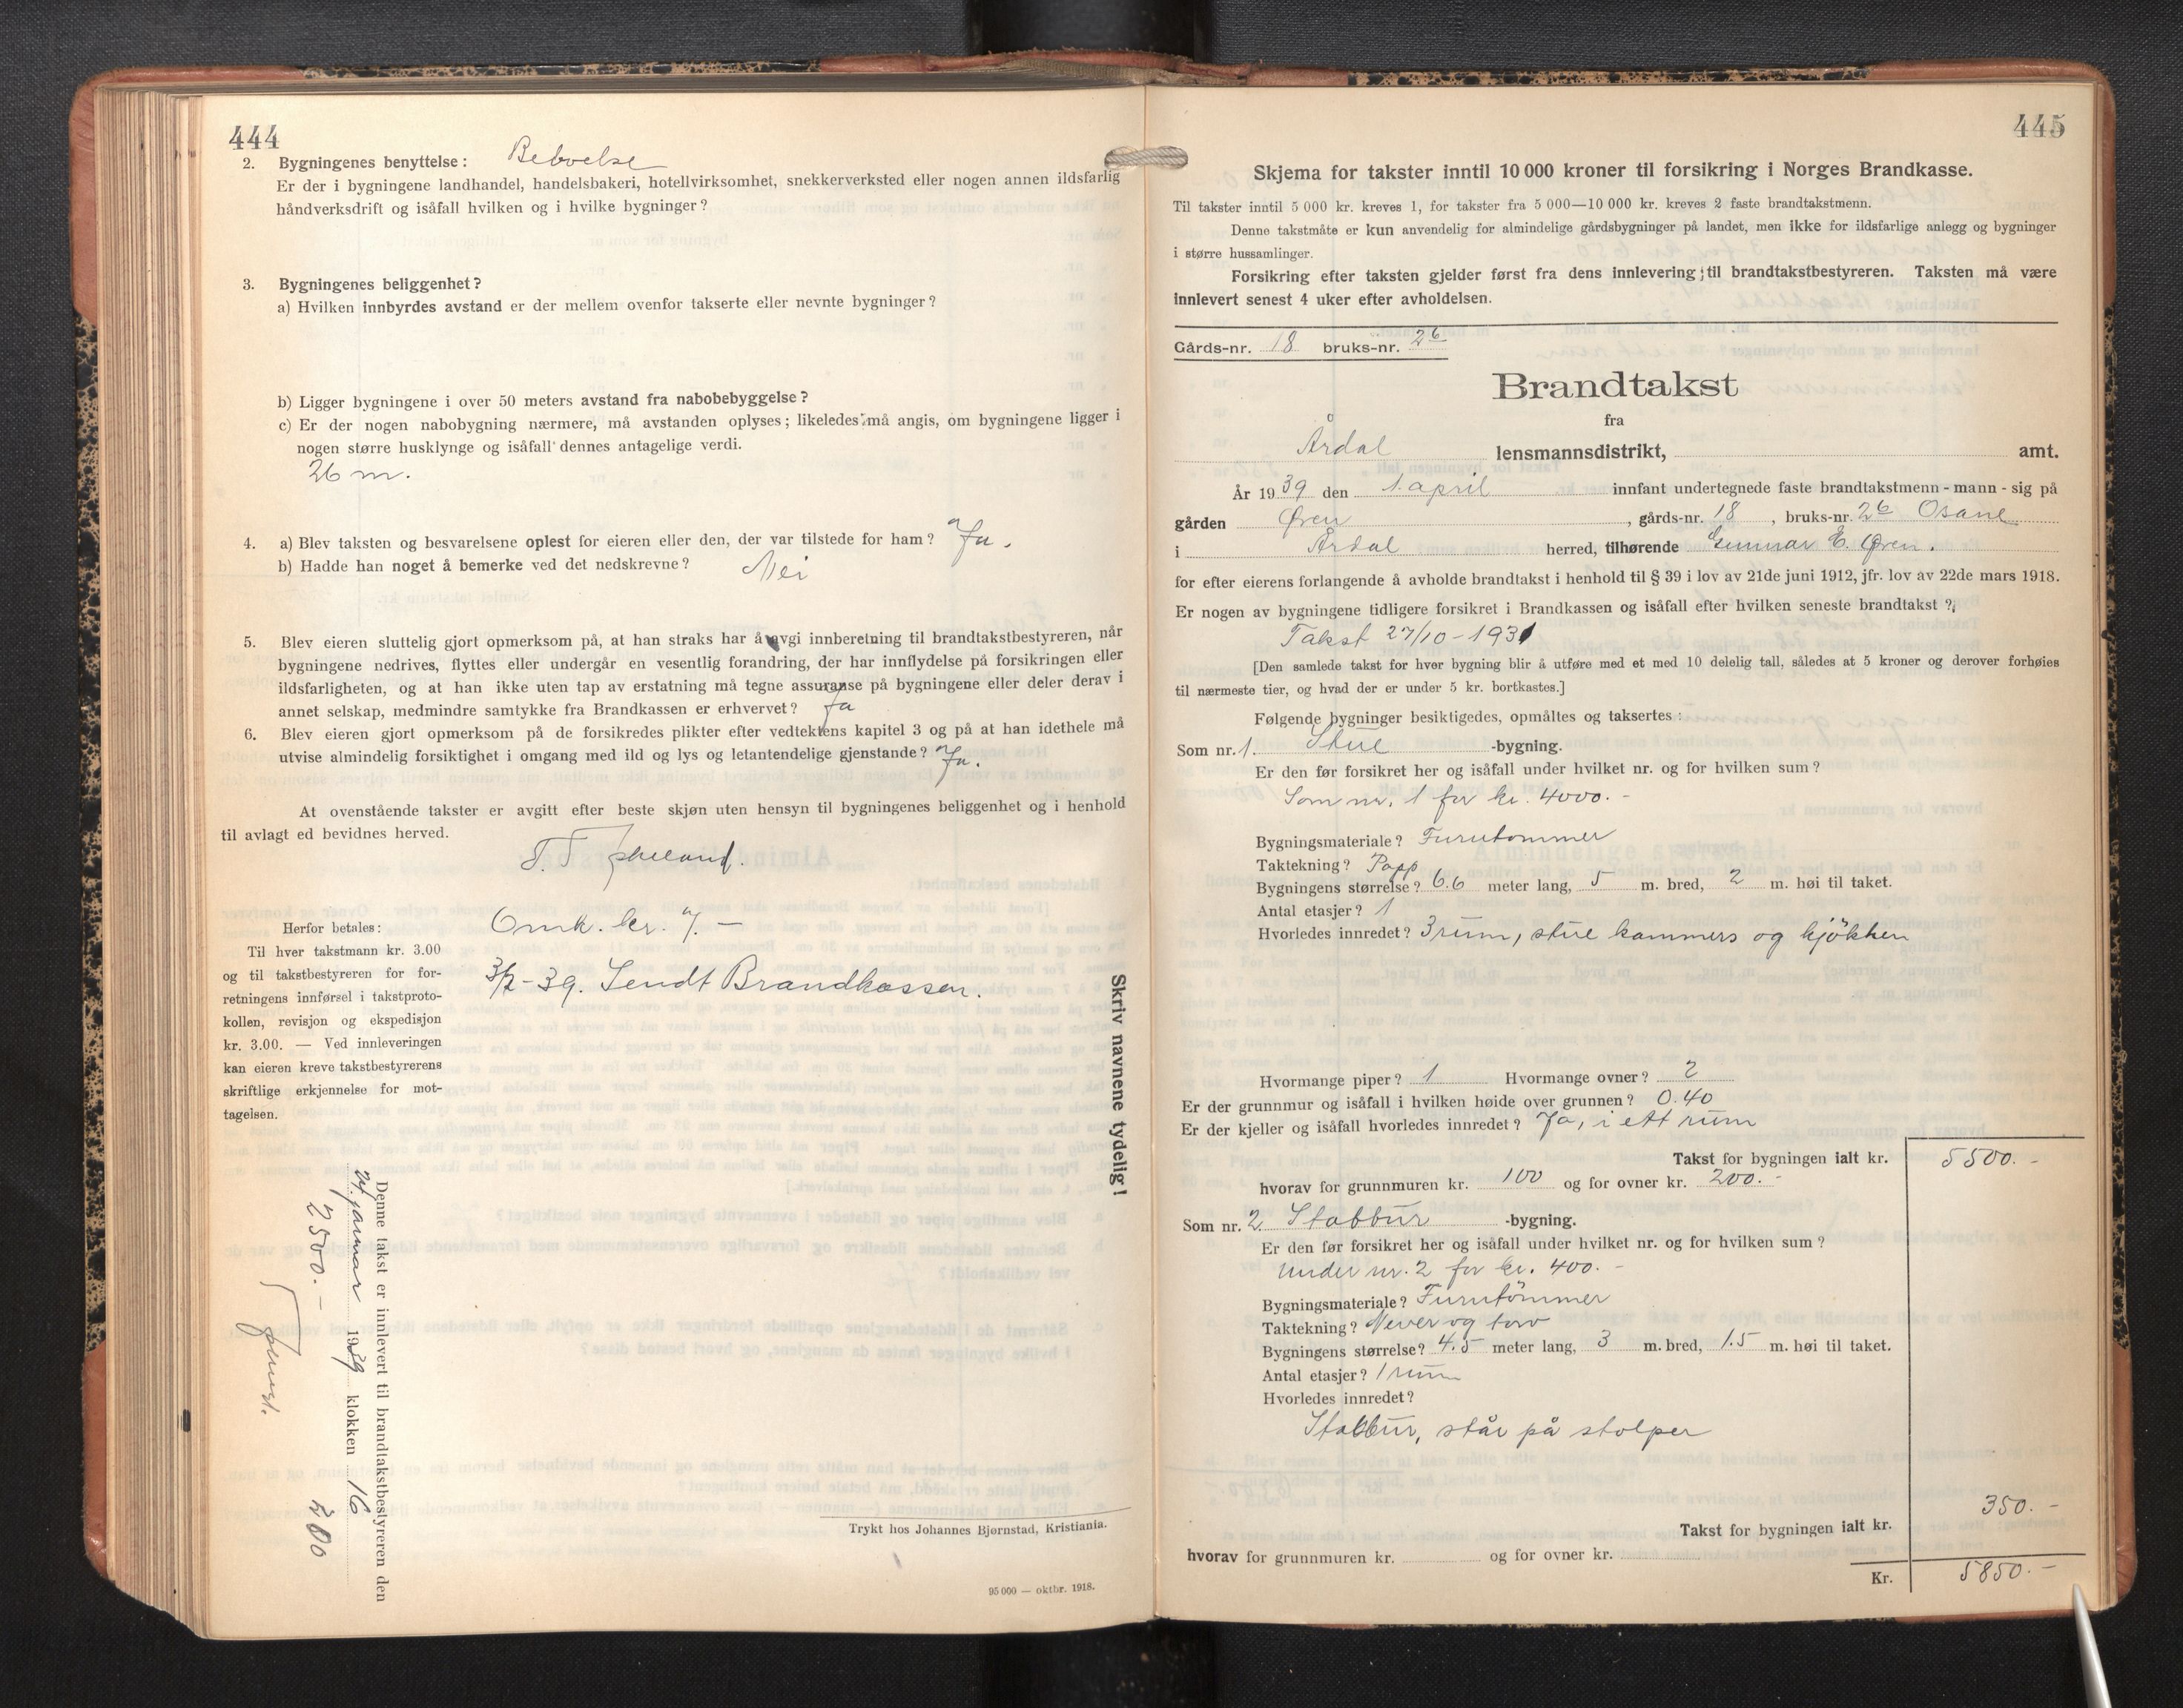 444
2. Bygningenes benyttelse: Beboelse
Er der i bygningene landhandel, handelsbakeri, hotellvirksomhet, snekkerverksted eller nogen annen ildsfarlig
håndverksdrift og isåfall hvilken og i hvilke bygninger?
3. Bygningenes beliggenhet?
a) Hvilken innbyrdes avstand er der mellem ovenfor takserte eller nevnte bygninger?
b) Ligger bygningene i over 50 meters avstand fra nabobebyggelse?
c) Er der nogen nabobygning nærmere, må avstanden oplyses; likeledes må angis, om bygningene ligger i
nogen større husklynge og isåfall dennes antagelige verdi.
26 m.
4. a) Blev taksten og besvarelsene oplest for eieren eller den, der var tilstede for ham? Ja.
b) Hadde han noget å bemerke ved det nedskrevne? Nei
5. Blev eieren sluttelig gjort opmerksom på, at han straks har å avgi innberetning til brandtakstbestyreren, når
bygningene nedrives, flyttes eller undergår en vesentlig forandring, der har innflydelse på forsikringen eller
ildsfarligheten, og at han ikke uten tap av erstatning må tegne assuranse på bygningene eller deler derav i
annet selskap, medmindre samtykke fra Brandkassen er erhvervet? Ja
6. Blev eieren gjort opmerksom på de forsikredes plikter efter vedtektens kapitel 3 og på at han idethele må
utvise almindelig forsiktighet i omgang med ild og lys og letantendelige gjenstande? Ja.
At ovenstående takster er avgitt efter beste skjøn uten hensyn til bygningenes beliggenhet og i henhold
til avlagt ed bevidnes herved.
T. T.
Omk. kr.
Herfor betales:
Til hver takstmann kr. 3.00
og til takstbestyreren for for-
retningens innførsel i takstproto-
kollen, revisjon og ekspedisjon
kr. 3.00. — Ved innleveringen
kan eieren kreve takstbestyrerens
skriftlige erkjennelse for mot-
tagelsen.
39. Sendt Brandkassen.
Skriv navnene tydelig!
Denne takst er innlevert til brandtakstbestyreren den
24. januar 1939 klokken 16
2500.-
200
Trykt hos Johannes Bjørnstad, Kristiania.
95 000 — oktbr. 1918.
445
Skjema for takster inntil 10 000 kroner til forsikring i Norges Brandkasse.
Til takster inntil 5 000 kr. kreves 1, for takster fra 5 000—10 000 kr. kreves 2 faste brandtakstmenn.
Denne takstmåte er kun anvendelig for almindelige gårdsbygninger på landet, men ikke for ildsfarlige anlegg og bygninger
i større hussamlinger.
Forsikring efter taksten gjelder først fra dens innlevering til brandtakstbestyreren. Taksten må være
innlevert senest 4 uker efter avholdelsen.
Gårds-nr. 18 bruks-nr. 26
Brandtakst
fra
Årdal lensmannsdistrikt, amt.
År 1939 den 1. april innfant undertegnede faste brandtakstmenn - mann - sig på
gården Øren, gårds-nr. 18, bruks-nr. 26 Osane
i Årdal herred, tilhørende Gunnar E. Øren.
for efter eierens forlangende å avholde brandtakst i henhold til § 39 i lov av 21de juni 1912, jfr. lov av 22de mars 1918.
Er nogen av bygningene tidligere forsikret i Brandkassen og isåfall efter hvilken seneste brandtakst?
Takst 27/10-1931
[Den samlede takst for hver bygning blir å utføre med et med 10 delelig tall, således at 5 kroner og derover forhøies
til nærmeste tier, og hvad der er under 5 kr. bortkastes.]
Følgende bygninger besiktigedes, opmåltes og taksertes:
Som nr. 1. Stue -bygning.
Er den før forsikret her og isåfall under hvilket nr. og for hvilken sum?
Som nr. 1 for kr. 4000.-
Bygningsmateriale? Furutømmer
Taktekning? Papp
Bygningens størrelse? 6.6 meter lang, 5 m. bred, 2 m. høi til taket.
Antal etasjer? 1
Hvorledes innredet? 3 rum, stue kammers og kjøkken
Hvormange piper? 1 Hvormange ovner? 2
Er der grunnmur og isåfall i hvilken høide over grunnen? 0.40
Er der kjeller og isåfall hvorledes innredet? Ja, i ett rum
Takst for bygningen ialt kr. 5500.-
hvorav for grunnmuren kr. 100 og for ovner kr. 200.-
Som nr. 2. Stabbur -bygning.
Er den før forsikret her og isåfall under hvilket nr. og for hvilken sum?
Under nr. 2 for kr. 400.-
Bygningsmateriale? Furutømmer
Taktekning? Never og torv
Bygningens størrelse? 4.5 meter lang, 3 m. bred, 1.5 m. høi til taket.
Antal etasjer? 1 rum
Hvorledes innredet?
Stabbur, står på stolper
350.-
Takst for bygningen ialt kr.
hvorav for grunnmuren kr. og for ovner kr.
Kr. 5850.-